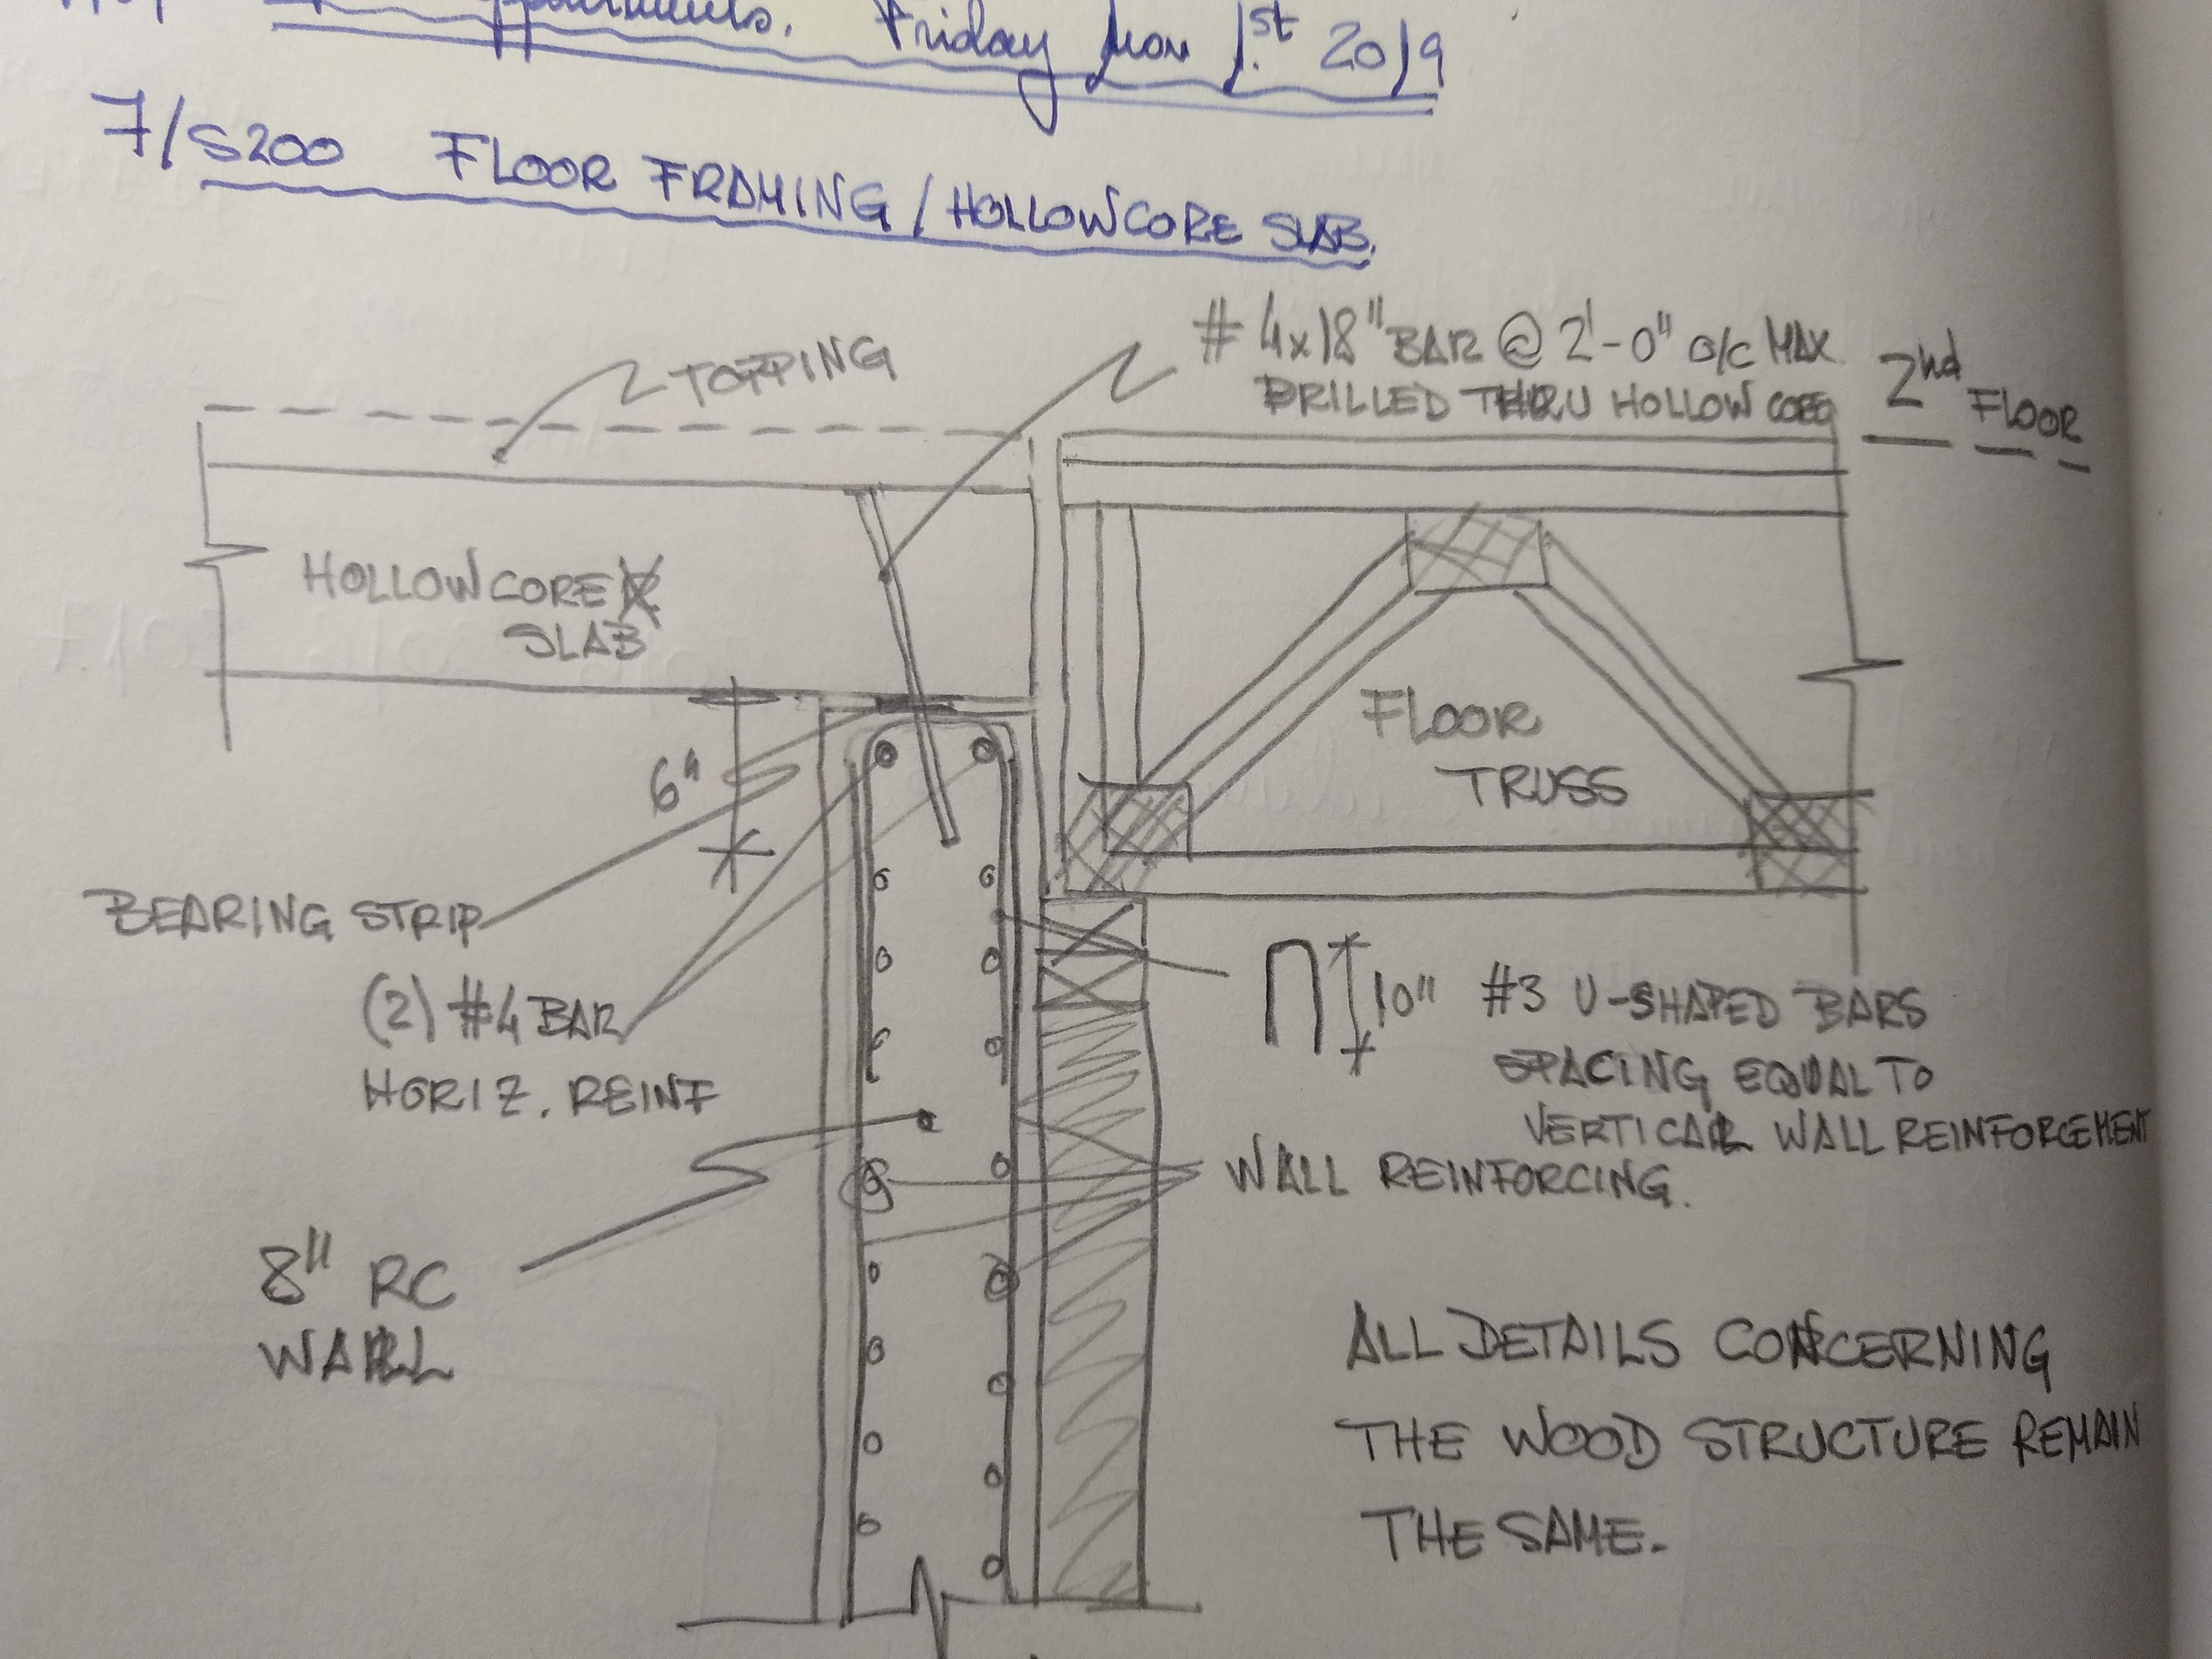 Friday Nov 1st 2019
7/S200 FLOOR FRAMING / HOLLOWCORE SLAB.
TOPPING
# 4x18" BAR @ 2'-0" o/c MAX.
DRILLED THRU HOLLOW CORE
2nd FLOOR
HOLLOWCORE
SLAB
FLOOR
TRUSS
6"
BEARING STRIP
(2) #4 BAR
HORIZ. REINF
10" #3 U-SHAPED BARS
SPACING EQUAL TO
VERTICAL WALL REINFORCEMENT
WALL REINFORCING.
8" RC
WALL
ALL DETAILS CONCERNING
THE WOOD STRUCTURE REMAIN
THE SAME.